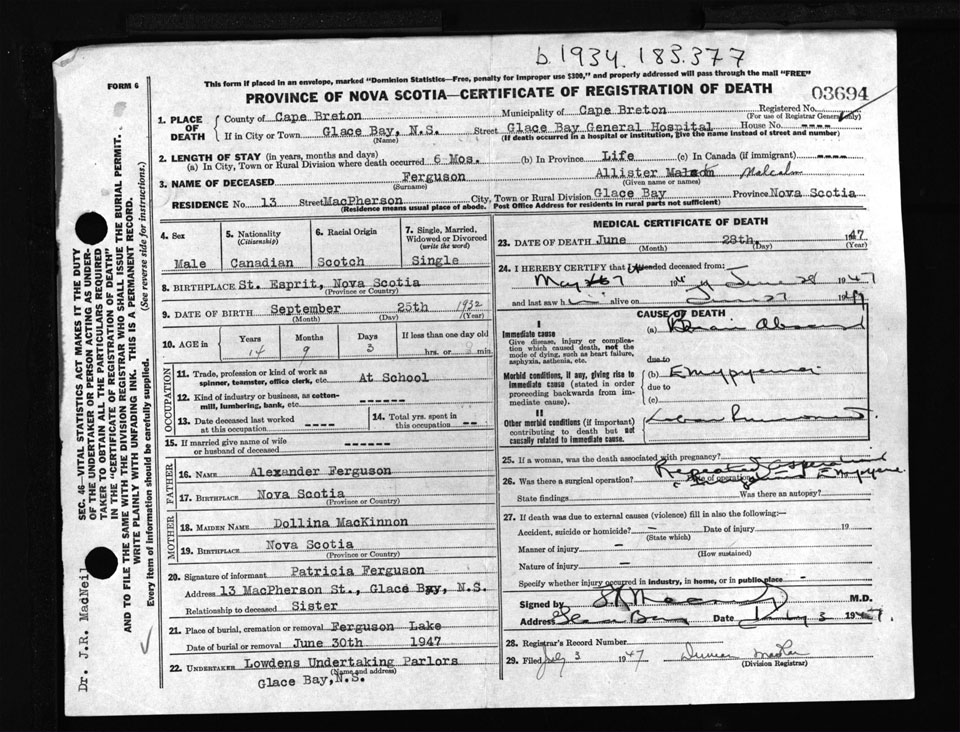 b.1934.183.377
FORM 6
This form if placed in an envelope, marked "Dominion Statistics—Free, penalty for improper use $300," and properly addressed will pass through the mail "FREE"
PROVINCE OF NOVA SCOTIA—CERTIFICATE OF REGISTRATION OF DEATH
03694
1. PLACE OF DEATH
County of Cape Breton Municipality of Cape Breton Registered No.
(For use of Registrar General only)
If in City or Town Glace Bay, N.S. Street Glace Bay General Hospital House No. ----
(Name) (If death occurred in a hospital or institution, give the name instead of street and number)
2. LENGTH OF STAY (in years, months and days)
(a) In City, Town or Rural Division where death occurred 6 Mos. (b) In Province Life (c) In Canada (if immigrant) ----
3. NAME OF DECEASED Ferguson Allister Malcolm
(Surname) (Given name or names)
RESIDENCE No. 13 Street MacPherson City, Town or Rural Division Glace Bay Province Nova Scotia
(Residence means usual place of abode. Post Office Address for residents in rural parts not sufficient)
4. Sex
Male
5. Nationality
(Citizenship)
Canadian
6. Racial Origin
Scotch
7. Single, Married, Widowed or Divorced
(write the word)
Single
8. BIRTHPLACE St. Esprit, Nova Scotia
(Province or Country)
9. DATE OF BIRTH September 25th 1932
(Month) (Day) (Year)
10. AGE in
Years Months Days If less than one day old
14 9 3 hrs. or min.
OCCUPATION
11. Trade, profession or kind of work as spinner, teamster, office clerk, etc. At School
12. Kind of industry or business, as cotton-mill, lumbering, bank, etc. ------
13. Date deceased last worked at this occupation ----
14. Total yrs. spent in this occupation ---
15. If married give name of wife or husband of deceased ------
FATHER
16. Name Alexander Ferguson
17. Birthplace Nova Scotia
(Province or Country)
MOTHER
18. Maiden Name Dollina MacKinnon
19. Birthplace Nova Scotia
(Province or Country)
20. Signature of informant Patricia Ferguson
Address 13 MacPherson St., Glace Bay, N.S.
Relationship to deceased Sister
21. Place of burial, cremation or removal Ferguson Lake
Date of burial or removal June 30th 1947
22. Undertaker Lowdens Undertaking Parlors
(Name and address)
Glace Bay, N.S.
MEDICAL CERTIFICATE OF DEATH
23. DATE OF DEATH June 28th, 1947
(Month) (Day) (Year)
24. I HEREBY CERTIFY that I attended deceased from:
May June 28 1947
and last saw h alive on June 27 19
CAUSE OF DEATH
I
Immediate cause
Give disease, injury or complication which caused death, not the mode of dying, such as heart failure, asphyxia, asthenia, etc.
(a) Brain Abscess
due to
Morbid conditions, if any, giving rise to immediate cause (stated in order proceeding backwards from immediate cause).
(b) Empyema
due to
(c)
II
Other morbid conditions (if important) contributing to death but not causally related to immediate cause.
Lobar
25. If a woman, was the death associated with pregnancy?
26. Was there a surgical operation? Date of operation
Repeated Aspiration Empyema
State findings Was there autopsy?
27. If death was due to external causes (violence) fill in also the following:—
Accident, suicide or homicide? — Date of injury 19
(State which)
Manner of injury —
(How sustained)
Nature of injury —
Specify whether injury occurred in industry, in home, or in public place
Signed by M.D.
Address Glace Bay Date July 3 1947
28. Registrar's Record Number
29. Filed July 3 1947 Duncan
(Division Registrar)
SEC. 46—VITAL STATISTICS ACT MAKES IT THE DUTY
OF THE UNDERTAKER OR PERSON ACTING AS UNDER-
TAKER TO OBTAIN ALL THE PARTICULARS REQUIRED
IN THE "CERTIFICATE OF REGISTRATION OF DEATH"
AND TO FILE THE SAME WITH THE DIVISION REGISTRAR WHO SHALL ISSUE THE BURIAL PERMIT.
WRITE PLAINLY WITH UNFADING INK. THIS IS A PERMANENT RECORD.
Every item of information should be carefully supplied. (See reverse side for instructions.)
Dr. J.R. MacNeil